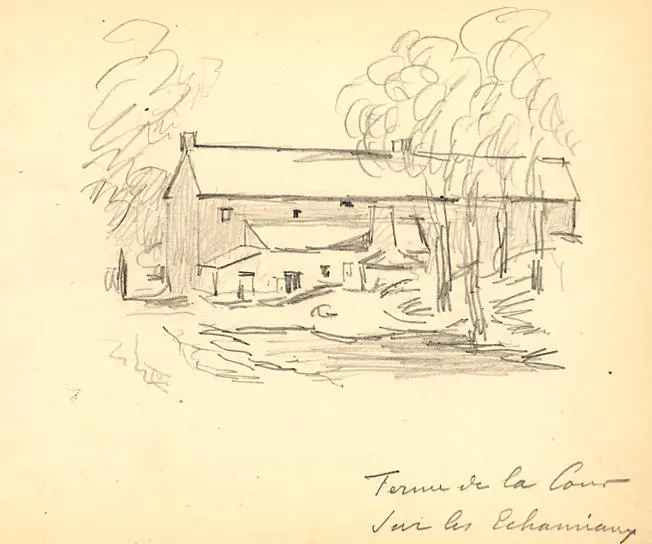 Ferme de la Cour
Sur les Echamiaux